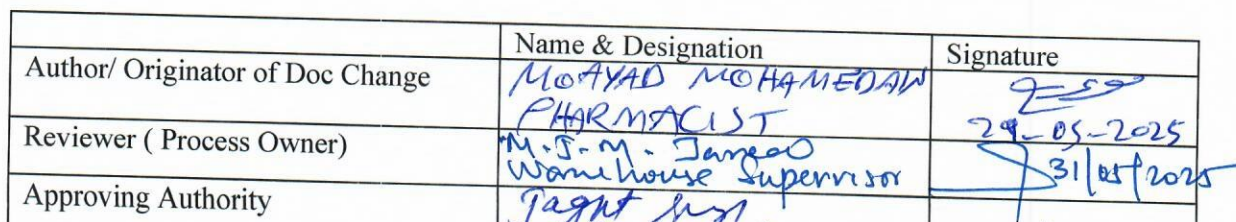 Name & Designation Signature
Author/ Originator of Doc Change MOAYAD MOHAMEDAW
PHARMACIST 29-05-2025
Reviewer ( Process Owner) M.J.M.
Warehouse Supervisor 31/05/2025
Approving Authority